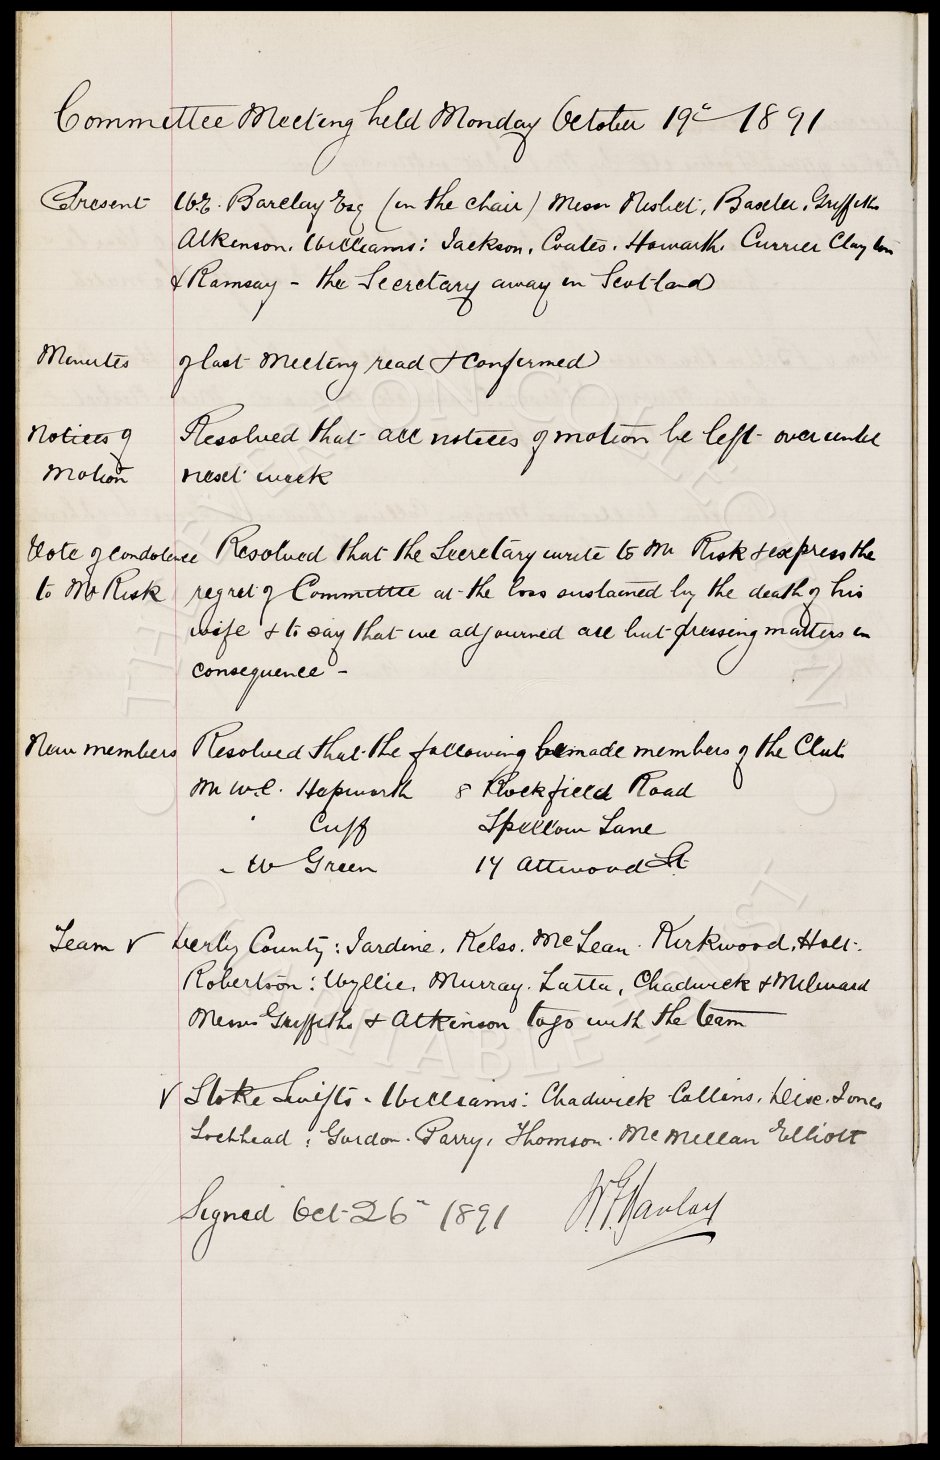 Committee Meeting held Monday October 19th 1891
Present W.E. Barclay Esq (in the chair) Messrs Nisbet, Baxter, Griffiths
Atkinson, Williams: Jackson, Coates, Howarth, Currier Clayton
& Ramsay - the Secretary away in Scotland
Minutes of last Meeting read & confirmed
Notices of Resolved that all notices of motion be left over until
Motion next week
Vote of condolence Resolved that the Secretary write to Mr Risk & express the
to Mr Risk regret of Committee at the loss sustained by the death of his
wife & to say that we adjourned all but pressing matters in
consequence -
New members Resolved that the following be made members of the Club
Mr W.C. Hepworth 8 Rockfield Road
" Cuff Spellow Lane
" W Green 14 Attwood St
Team v Derby County: Jardine, Kelso, McLean, Kirkwood, Holt,
Robertson: Wyllie, Murray, Latta, Chadwick & Milward
Messrs Griffiths & Atkinson to go with the team
v Stoke Swifts - Williams: Chadwick Collins, Dixe, Jones
Lochhead: Gordon, Parry, Thomson, McMillan Elliott
Signed Oct 26th 1891 W.E. Barclay
THE EVERTON COLLECTION
CHARITABLE TRUST